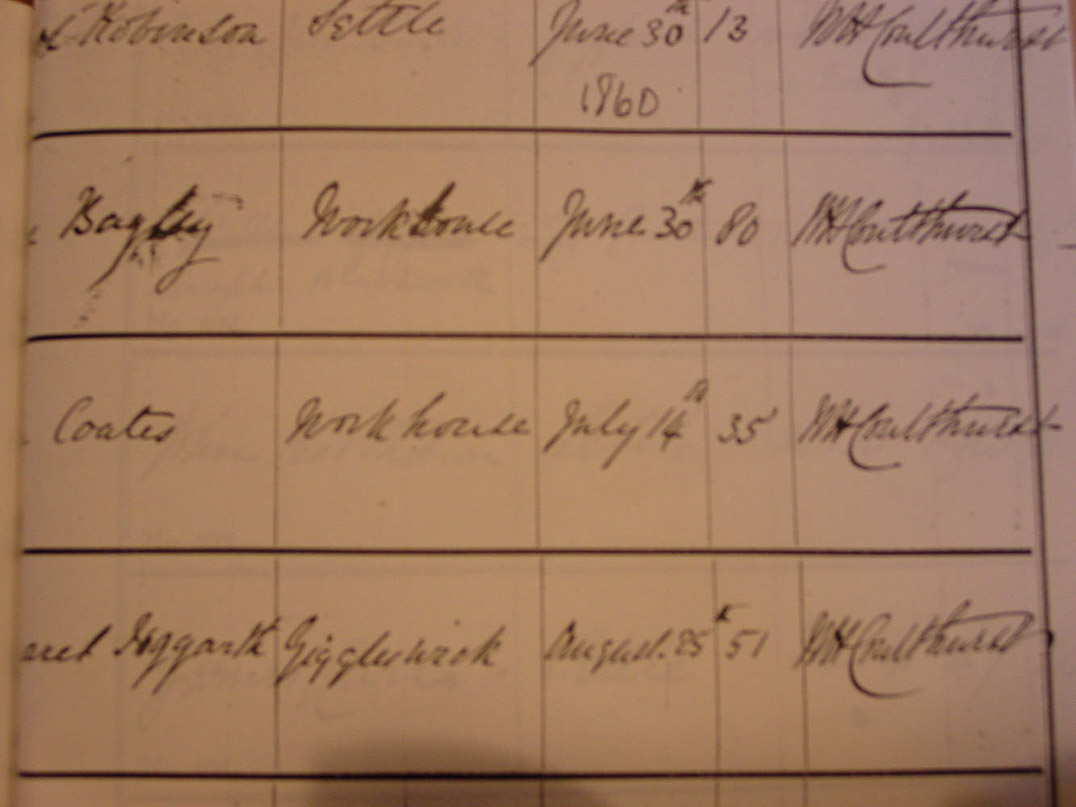 Robinson Settle June 30th 13 WH Coulthurst
1860
Bagley Workhouse June 30th 80 WH Coulthurst
Coates Workhouse July 14th 35 WH Coulthurst
aret Hggarth Giggleswick August 25th 51 WH Coulthurst